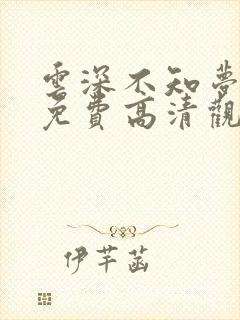 雲深不知夢
免費高清觀
伊芊菡